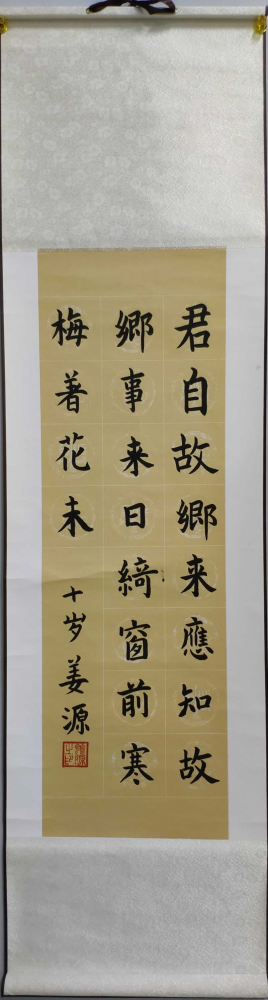 君自故鄉来應知故
鄉事来日綺窗前寒
梅著花未
十岁姜源